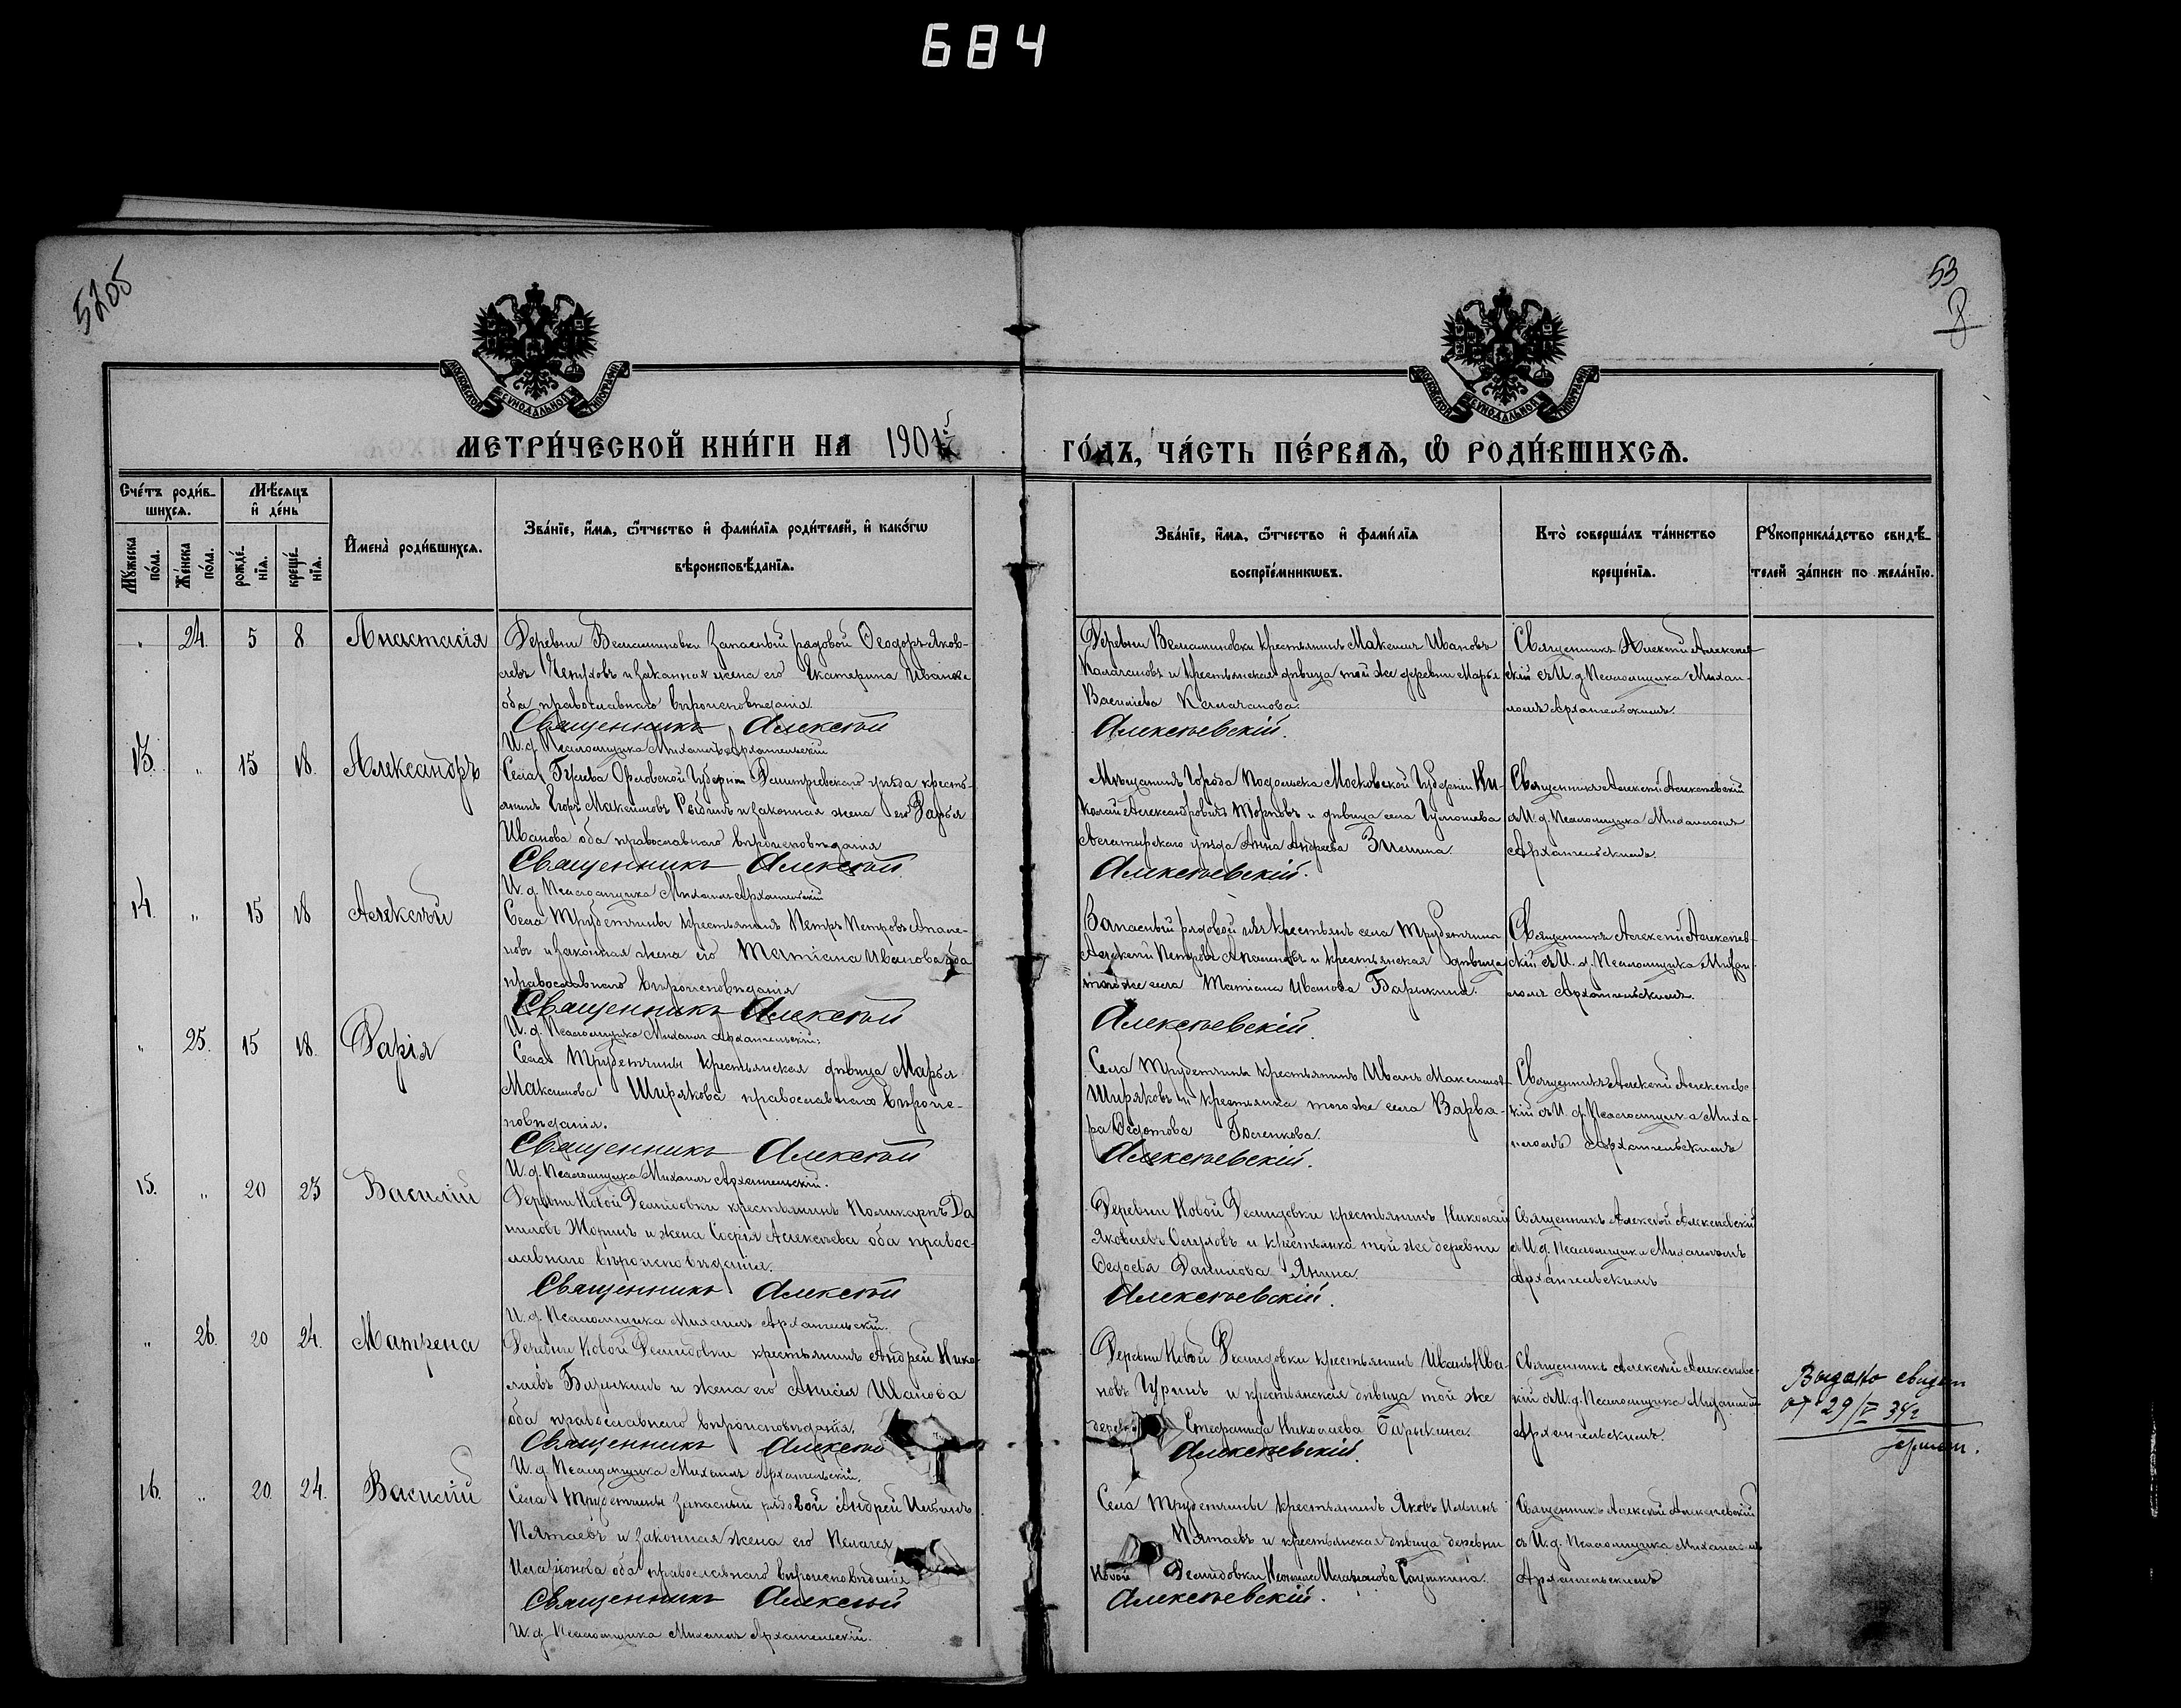 684
5205
53
8
МОСКОВСКОЙ СѴНОДАЛЬНОЙ ТИПОГРАФІИ
МОСКОВСКОЙ СѴНОДАЛЬНОЙ ТИПОГРАФІИ
МЕТРИ́ЧЕСКОЙ КНИ́ГИ НА 1901
ГО́ДЪ, ЧА́СТЬ ПЕ́РВАѦ, Ѡ РОДИ́ВШИХСѦ.
Сче́тъ роди́в-
шихсѧ.
Мꙋ́жеска по́ла.
Же́нска по́ла.
Мѣ́сѧцъ
и҆ де́нь
рожде́-
нїѧ.
креще́-
нїѧ.
И҆мена̀ роди́вшихсѧ.
Зва́нїе, и҆́мѧ, ѻ҆́тчество и҆ фами́лїѧ роди́телей, и҆ како́гѡ
вѣроисповѣ́данїѧ.
Зва́нїе, и҆́мѧ, ѻ҆́тчество и҆ фами́лїѧ
воспрїе́мникѡвъ.
Кто̀ соверша́лъ та́инство
креще́нїѧ.
Рꙋкоприкла́дство свидѣ́-
телей за́писи по жела́нїю.
„ 24. 5 8 Анастасія
Деревни Веламиновки запасный рядовой Ѳеодоръ Яков-
левъ и законная жена его Екатерина Иванова
оба православнаго вѣроисповѣданія.
Священникъ Алексѣй
И. д. Псаломщика Михаилъ Архангельскій
Деревни Веламиновки крестьянинъ Максимъ Ивановъ
Калачановъ и крестьянская дѣвица той же деревни Марья
Васильева Калачанова.
Алексѣевскій.
Священникъ Алексѣй Алексѣев-
скій съ И. д. Псаломщика Михаи-
ломъ Архангельскимъ.
13. „ 15 18. Александръ
Села Гусева Орловской Губерніи Дмитріевскаго уѣзда кресть-
янинъ Егоръ Максимовъ и законная жена его Дарья
Иванова оба православнаго вѣроисповѣданія
Священникъ Алексѣй
И. д. Псаломщика Михаилъ Архангельскій
Мѣщанинъ города Подольска Московской Губерніи Ни-
колай Александровичъ и дѣвица села
уѣзда Анна Андреева Зимина.
Алексѣевскій.
Священникъ Алексѣй Алексѣевскій
съ И. д. Псаломщика Михаиломъ
Архангельскимъ.
14. „ 15 18 Алексѣй
Села Трубетчины крестьянинъ Петръ Петровъ Апале-
новъ и законная жена его Татіана Иванова оба
православнаго вѣроисповѣданія
Священникъ Алексѣй
И. д. Псаломщика Михаилъ Архангельскій.
Запасный рядовой изъ крестьянъ села Трубетчины
Алексѣй Петровъ Апаленовъ и крестьянская дѣвица
того же села Татіана Иванова Барыкина.
Алексѣевскій.
Священникъ Алексѣй Алексѣев-
скій съ И. д. Псаломщика Михаи-
ломъ Архангельскимъ.
„ 25. 15 18. Дарія
Села Трубетчины крестьянская дѣвица Марья
Максимова Ширякова православнаго вѣроис-
повѣданія.
Священникъ Алексѣй
И. д. Псаломщика Михаилъ Архангельскій.
Села Трубетчины крестьянинъ Иванъ Максимовъ
Ширяковъ и крестьянка того же села Варва-
ра Ѳедотова
Алексѣевскій.
Священникъ Алексѣй Алексѣевс-
кій съ И. д. Псаломщика Миха-
иломъ Архангельскимъ
15. „ 20 23 Василій
Деревни Новой Демидовки крестьянинъ Поликарпъ Да-
ниловъ и жена Софія Алексѣева оба правос-
лавнаго вѣроисповѣданія.
Священникъ Алексѣй
И. д. Псаломщика Михаилъ Архангельскій.
Деревни Новой Демидовки крестьянинъ Николай
Яковлевъ и крестьянка той же деревни
Данилова
Алексѣевскій.
Священникъ Алексѣй Алексѣевскій
съ И. д. Псаломщика Михаиломъ
Архангельскимъ
„ 26. 20 24. Матрена
Деревни Новой Демидовки крестьянинъ Андрей Нико-
лаевъ Барыкинъ и жена его Анисія Иванова
оба православнаго вѣроисповѣданія.
Священникъ Алексѣй
И. д. Псаломщика Михаилъ Архангельскій.
Деревни Новой Демидовки крестьянинъ Иванъ Ива-
новъ и крестьянская дѣвица той же
деревни Стефанида Николаева Барыкина.
Алексѣевскій.
Священникъ Алексѣй Алексѣевс-
кій съ И. д. Псаломщика Михаиломъ
Архангельскимъ.
Выдано свидет
от 29/V 34г
16. „ 20. 24. Василій
Села Трубетчины запасный рядовой Андрей Ильинъ
Пятаевъ и законная жена его Пелагея
Иларіонова оба православнаго вѣроисповѣданія
Священникъ Алексѣй
И. д. Псаломщика Михаилъ Архангельскій.
Села Трубетчины крестьянинъ Яковъ Ильинъ
Пятаевъ и крестьянская дѣвица деревни
Новой Демидовки Иларіонова
Алексѣевскій.
Священникъ Алексѣй Алексѣевскій
съ И. д. Псаломщика Михаиломъ
Архангельскимъ